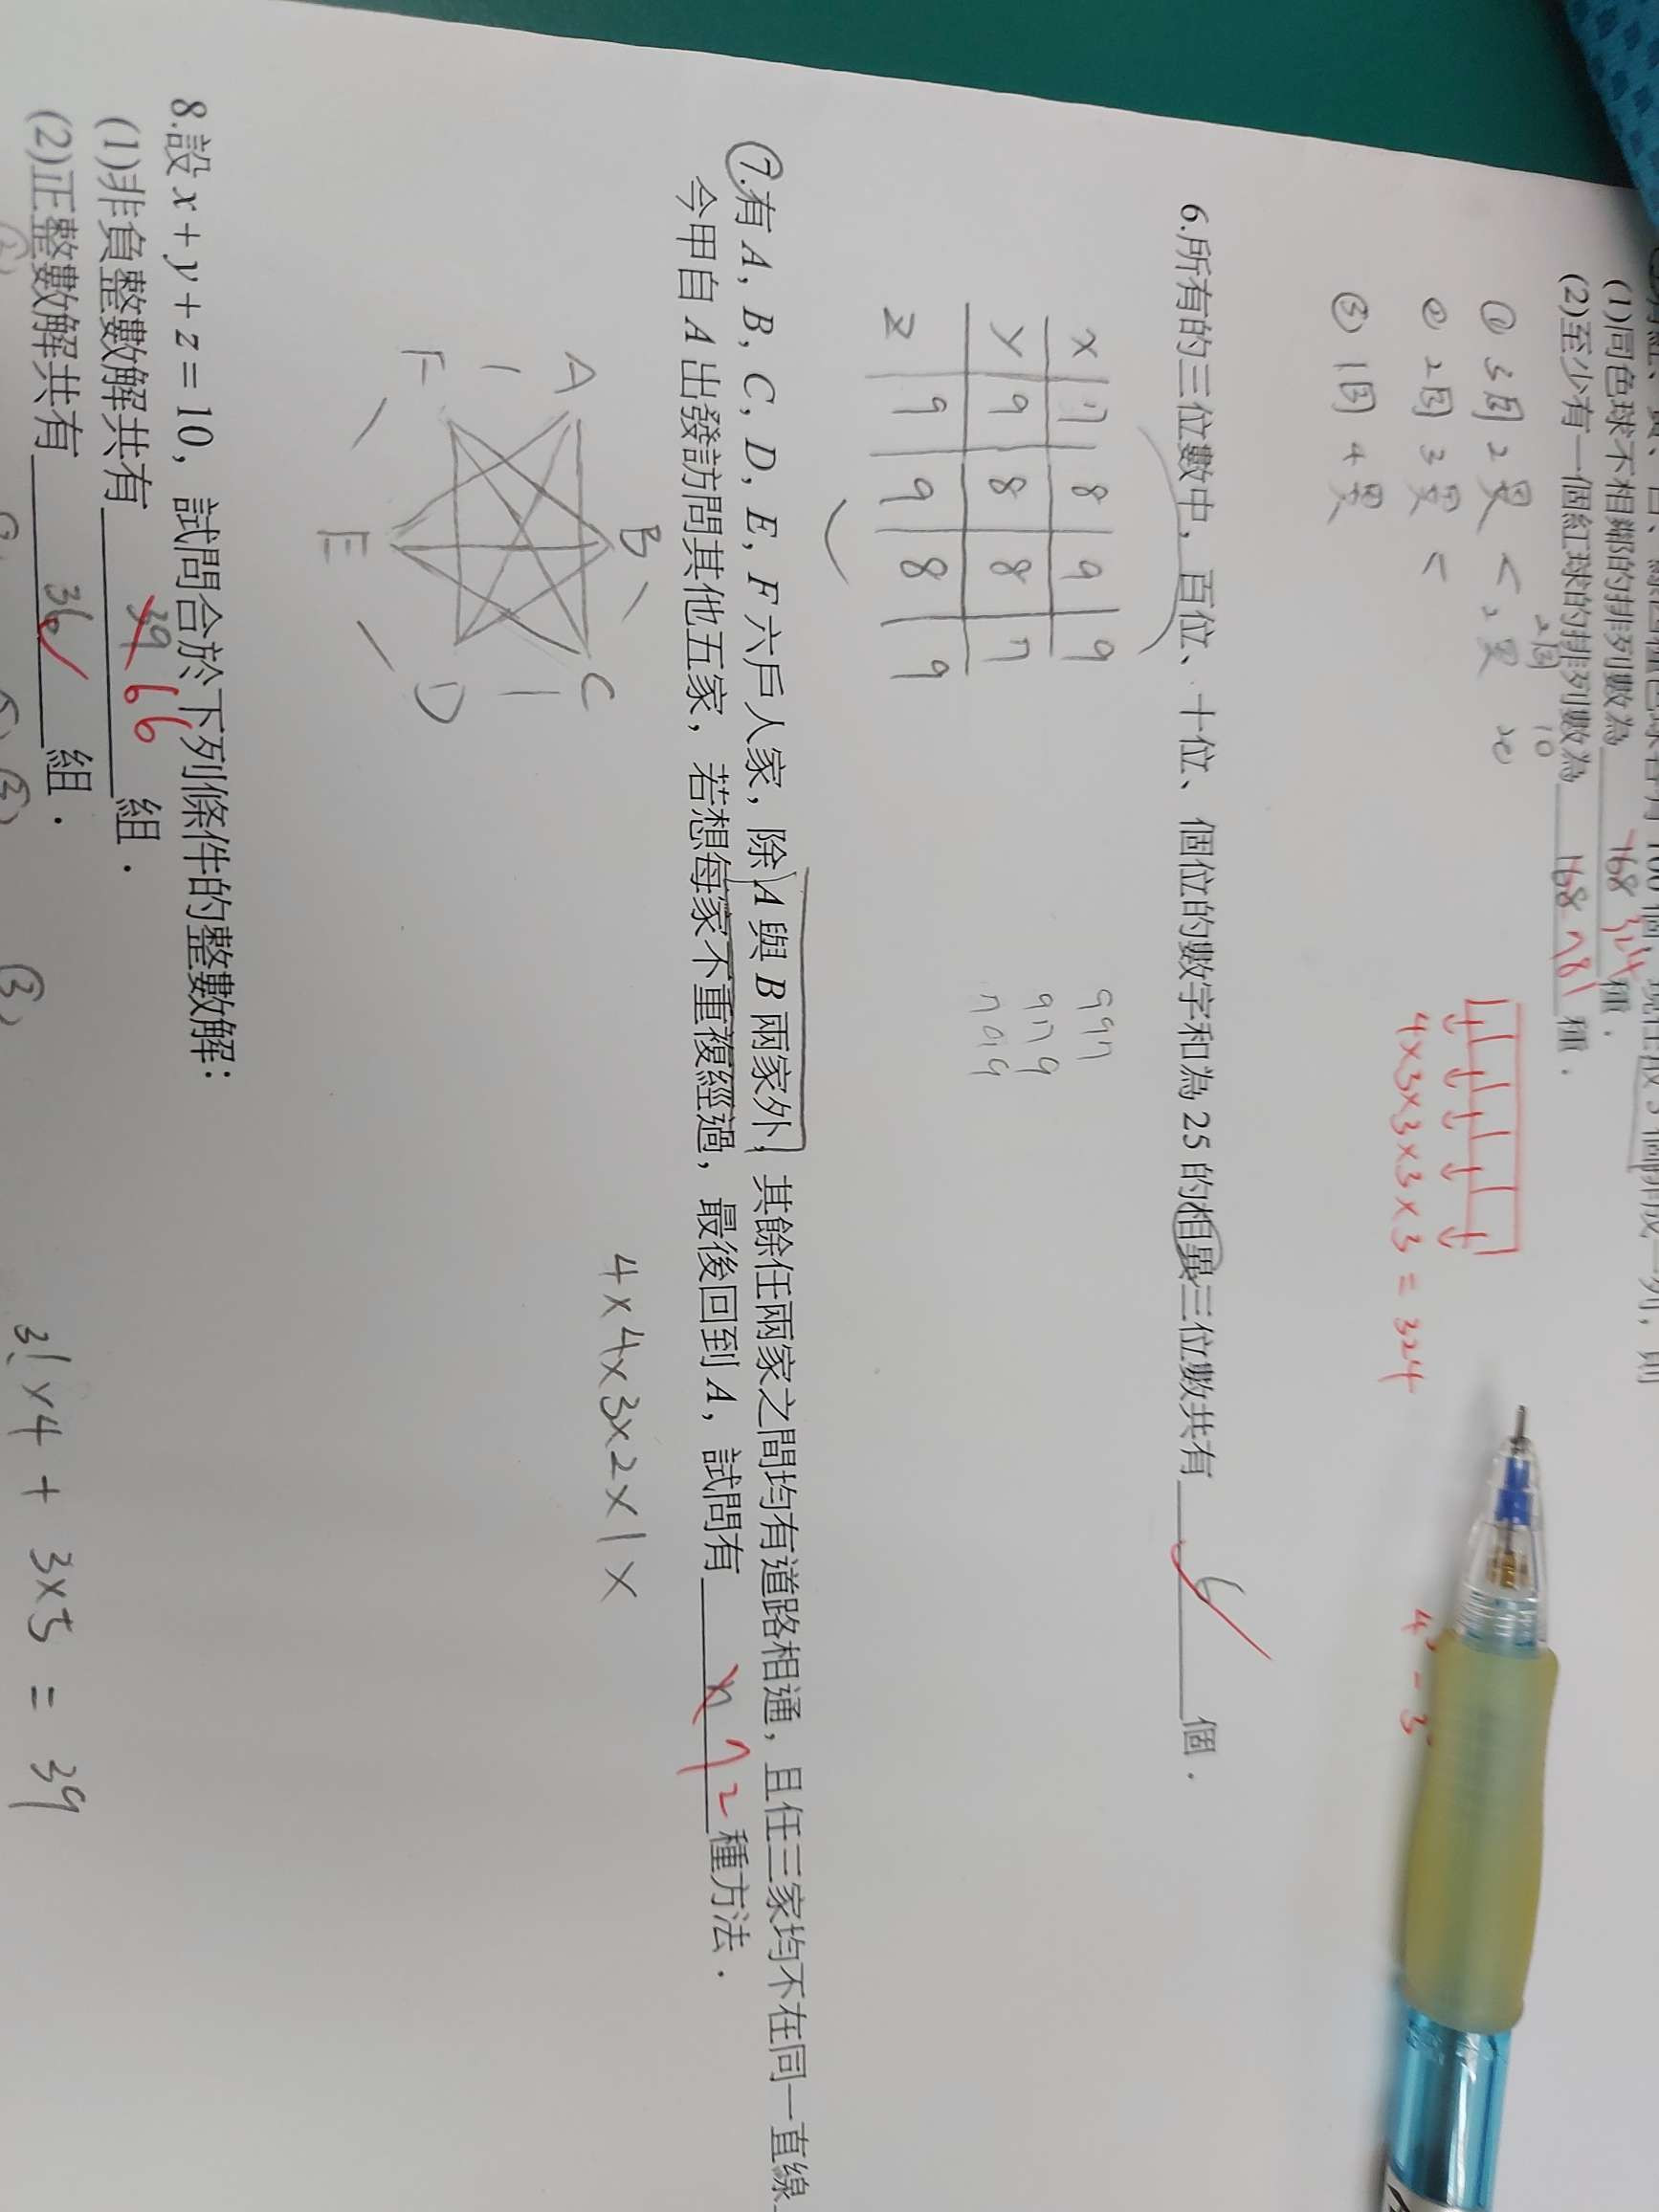 (1)同色球不相鄰的排列數為 768 324 種.
(2)至少有一個紅球的排列數為 168 781 種.
① 3同 2異
② 2同 3異
③ 1同 4異
4×3×3×3×3 = 324
6.所有的三位數中，百位、十位、個位的數字和為 25 的相異三位數共有 6 個.
x 7 8 9 9
y 9 8 8 7
z 9 9 8 9
997
979
799
7.有 A, B, C, D, E, F 六戶人家，除 A 與 B 兩家外，其餘任兩家之間均有道路相通，且任三家均不在同一直線
今甲自 A 出發訪問其他五家，若想每家不重複經過，最後回到 A，試問有 72 種方法.
4×4×3×2×1×
A
B
C
D
E
F
8.設 x + y + z = 10，試問合於下列條件的整數解：
(1)非負整數解共有 39 66 組.
(2)正整數解共有 36 組.
3×5 = 39